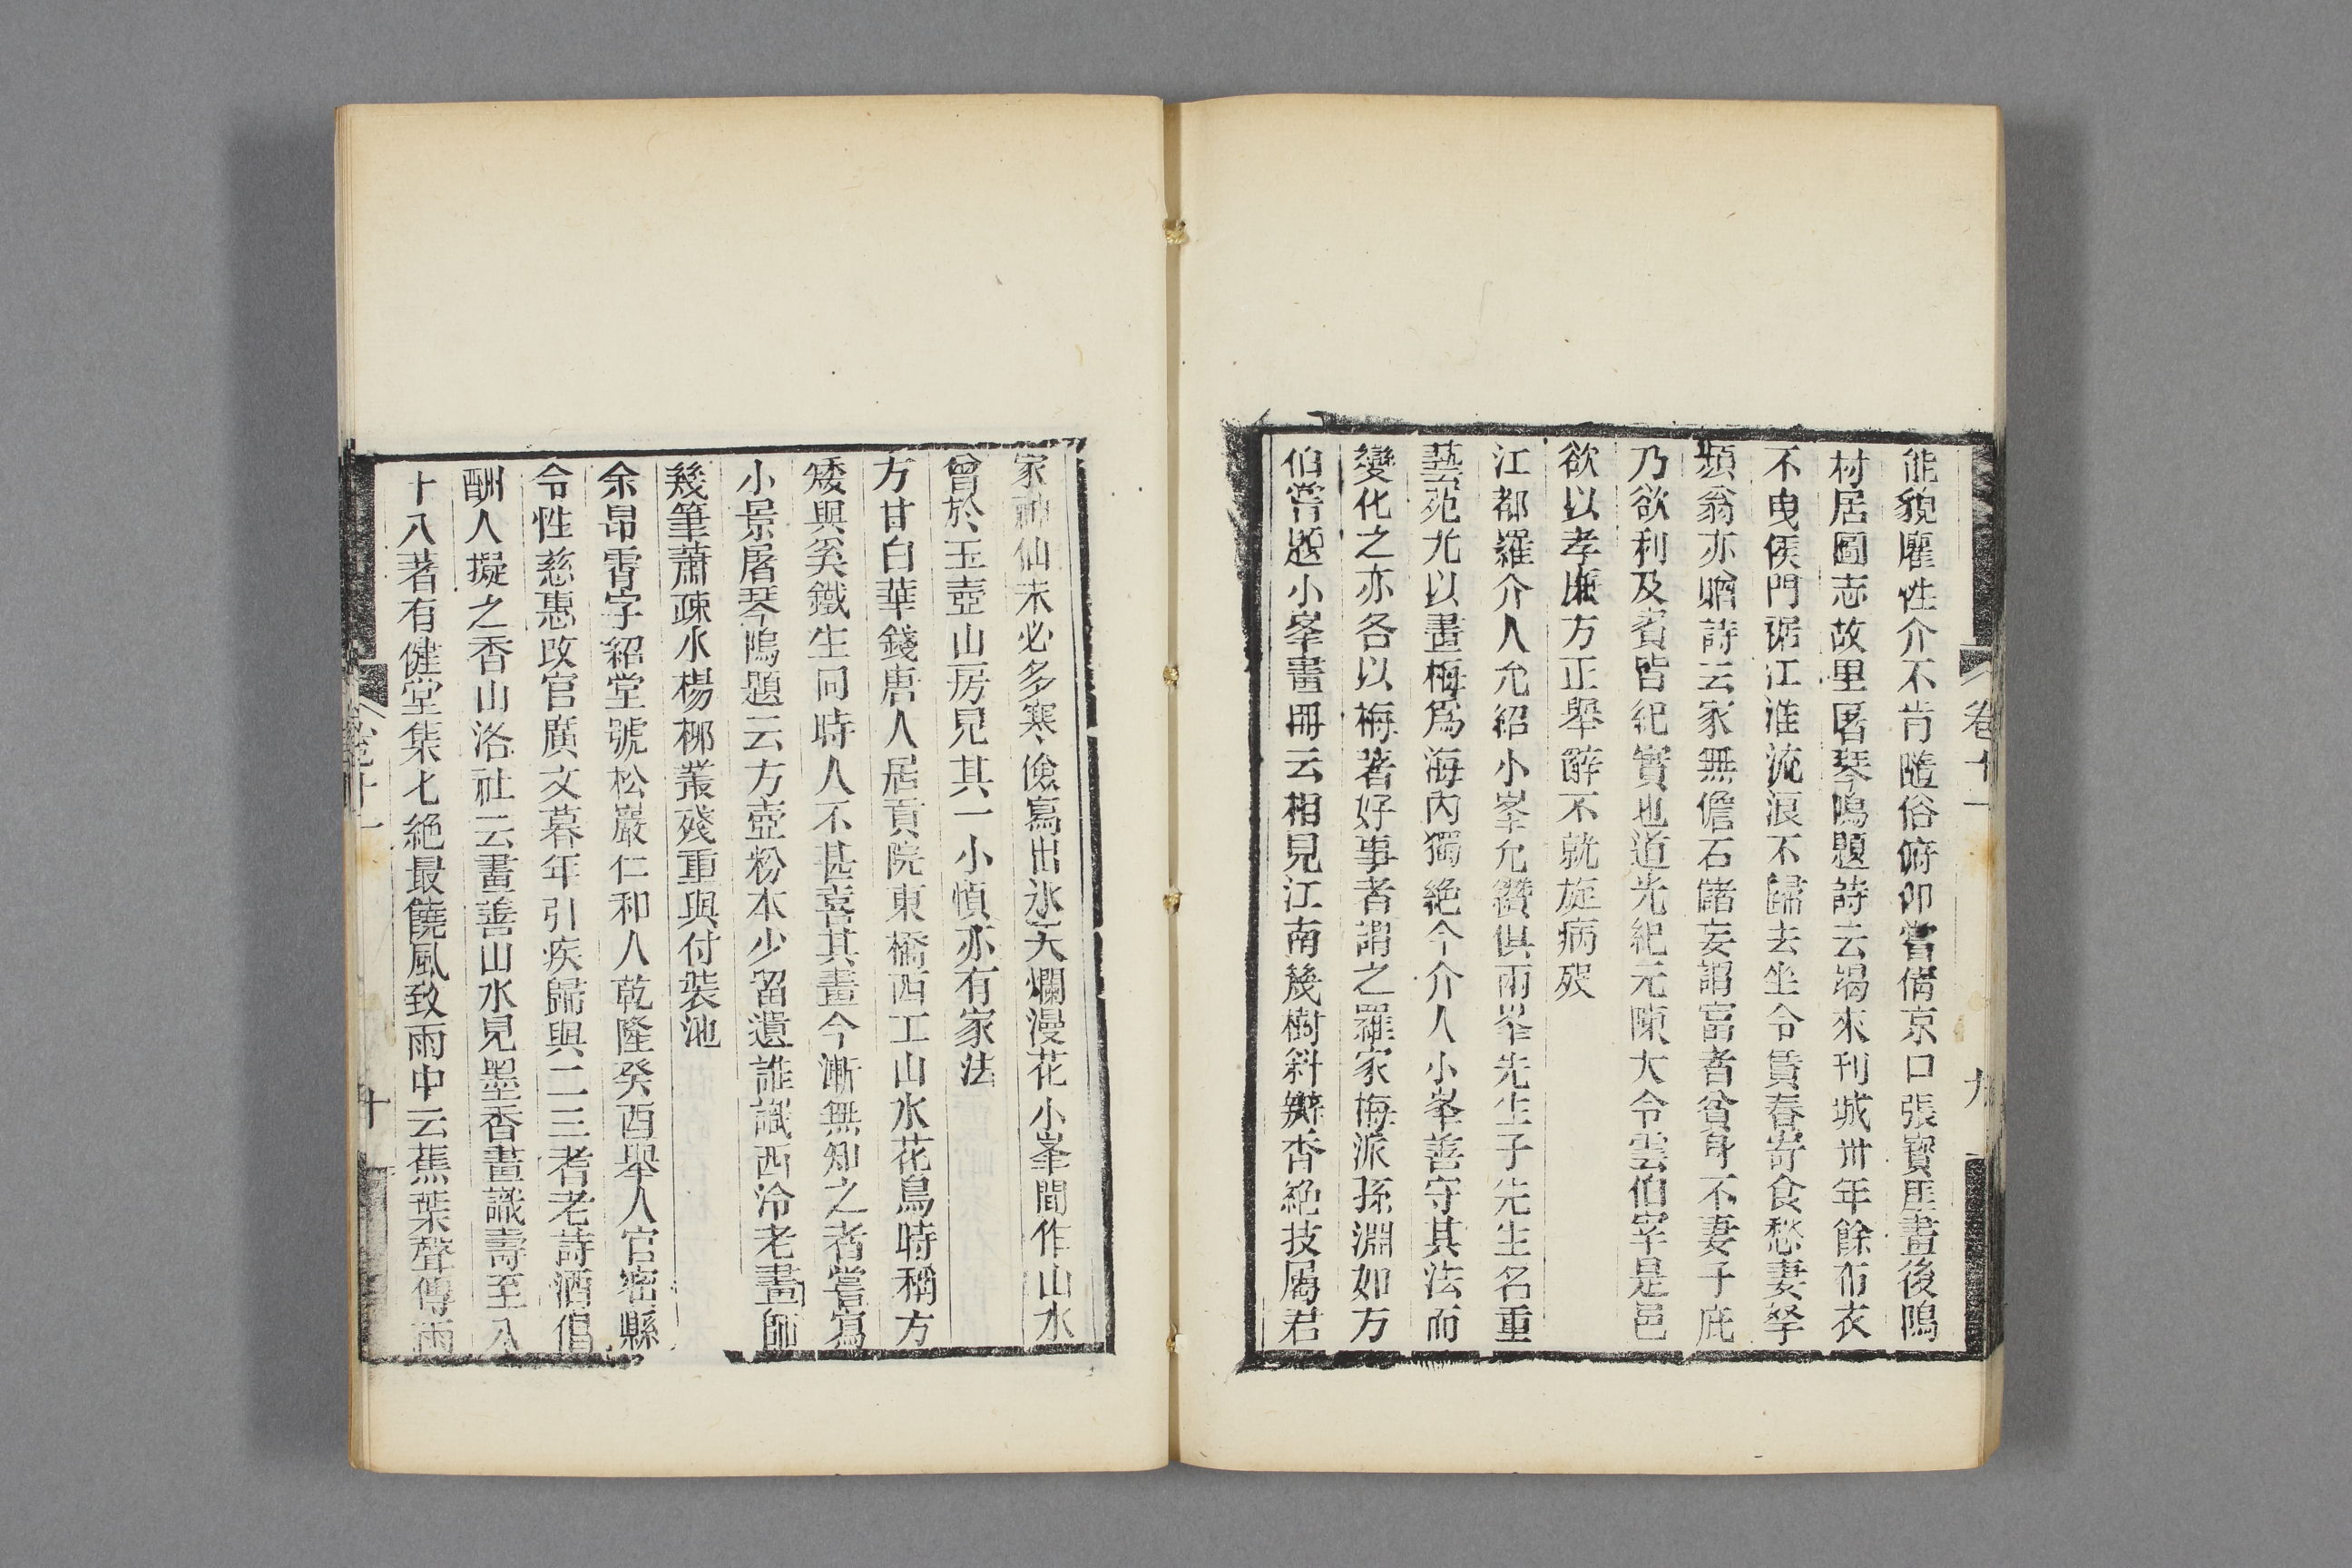 能貌臞性介不肯隨俗俯仰嘗倩京口張寶厓畫後鳴
村居圖志故里屠琴隖題詩云朅來刊城卅年餘布衣
不曳侯門裾江淮流浪不歸去坐令賃舂寄食愁妻孥
頻翁亦贈詩云家無儋石儲妄謂富者貧身不妻子庇
乃欲利及賓皆紀實也道光紀元陳大令雲伯宰是邑
欲以孝廉方正舉辭不就旋病歿
江都羅介人允紹小峯允纘俱兩峯先生子先生名重
藝苑尤以畫梅爲海內獨絕今介人小峯善守其法而
變化之亦各以梅著好事者謂之羅家梅派孫淵如方
伯嘗題小峯畫冊云相見江南幾樹斜瓣香絕技屬君
卷十一
九
家神仙未必多寒儉寫出冰天爛漫花小峯間作山水
曾於玉壺山房見其一小幀亦有家法
方甘白華錢唐人居貢院東橋西工山水花鳥時稱方
矮與奚鐵生同時人不甚喜其畫今漸無知之者嘗寫
小景屠琴隖題云方壺粉本少留遺誰識西泠老畫師
幾筆蕭疎水楊柳叢殘重與付裝池
余昂霄字紹堂號松巖仁和人乾隆癸酉舉人官密縣
令性慈惠改官廣文暮年引疾歸與二三耆老詩酒倡
酬人擬之香山洛社云畫善山水見墨香畫識壽至八
十八著有健堂集七絕最饒風致雨中云蕉葉聲傳雨
卷十一
十